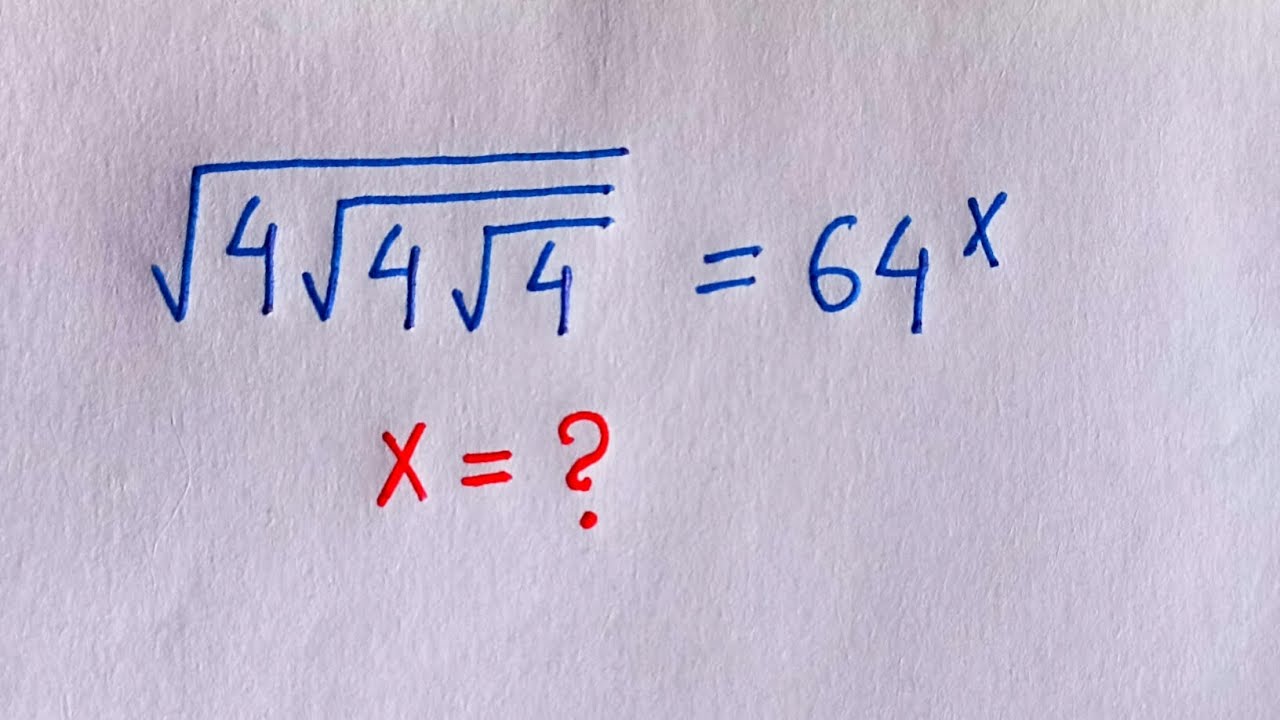 √4√4√4 = 64^x
x = ?